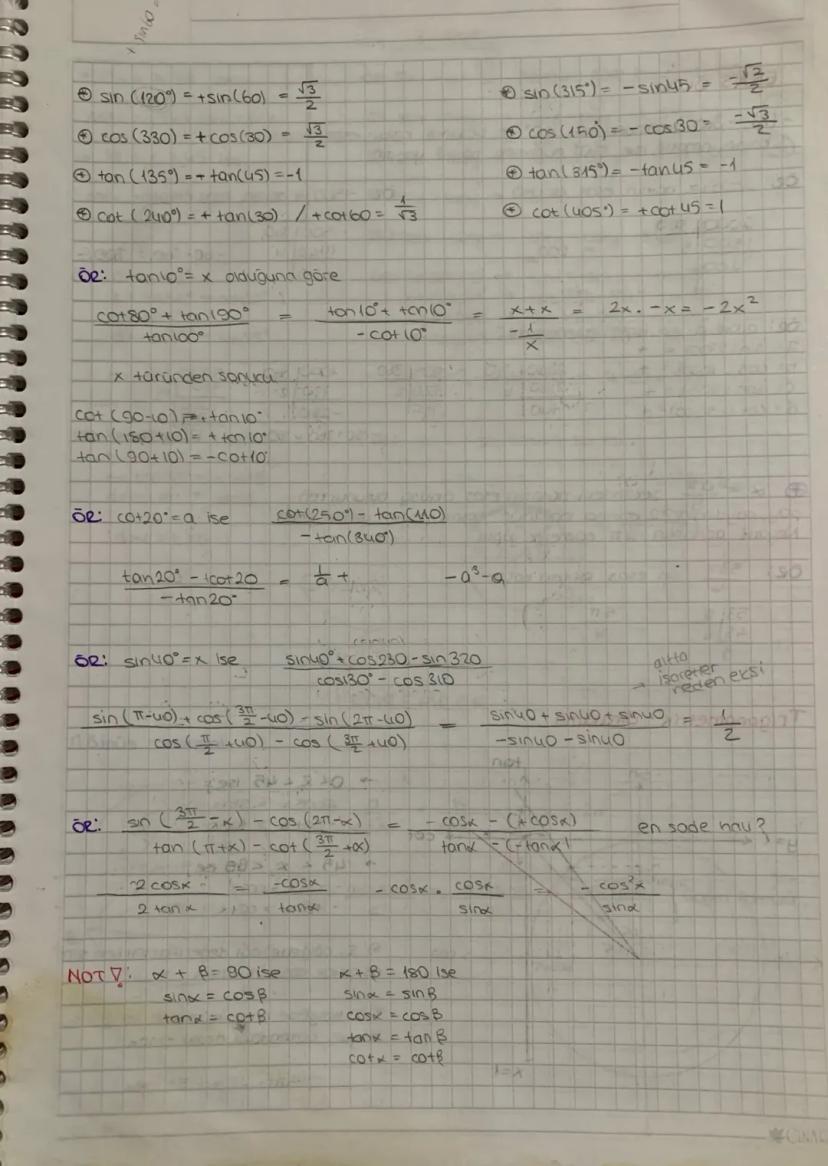 x sin60 =
sin(120°) = +sin(60) = √3/2
sin(315°) = -sin45 = -√2/2
cos(330) = +cos(30) = √3/2
cos(150°) = -cos30 = -√3/2
tan(135°) = - tan(45) = -1
tan(315°) = -tan45 = -1
cot(240°) = + tan(30) / +cot60 = 1/√3
cot(405°) = +cot45 = 1
ÖR: tan10° = x olduğuna göre
(cot80° + tan190°)/(tan100°) = (tan10° + tan10°)/(-cot10°) = (x+x)/(-1/x) = 2x . -x = -2x²
x türünden sonucu
cot(90-10) = + tan10°
tan(180+10) = + tan10°
tan(90+10) = -cot10
ÖR: cot20° = a ise (cot(250°) - tan(110))/(-tan(340°))
(tan20° - +cot20)/(-tan20°) = 1/a + -a³-a
ÖR: sin40° = x ise (sin40° + cos230 - sin320)/(cos130° - cos310)
altta
işaretler
→ neden eksi
(sin(π-40) + cos(3π/2 -40) - sin(2π-40))/(cos(π/2 +40) - cos(3π/2 +40)) = (sin40 + sin40 + sin40)/(-sin40 - sin40) = 1/2
ÖR: (sin(3π/2 -α) - cos(2π-α))/(tan(π+α) - cot(3π/2 +α)) = (-cosα - (+cosα))/(tanα - (-tanα) en sade hali?
-2cosα/2tanα = -cosα/tanα -cosα . cosα/sinα = -cos²α/sinα
NOT!: α + β = 90 ise α + β = 180 ise
sinα = cosβ sinα = sinβ
tanα = cotβ cosα = cosβ
tanα = tanβ
cotα = cotβ